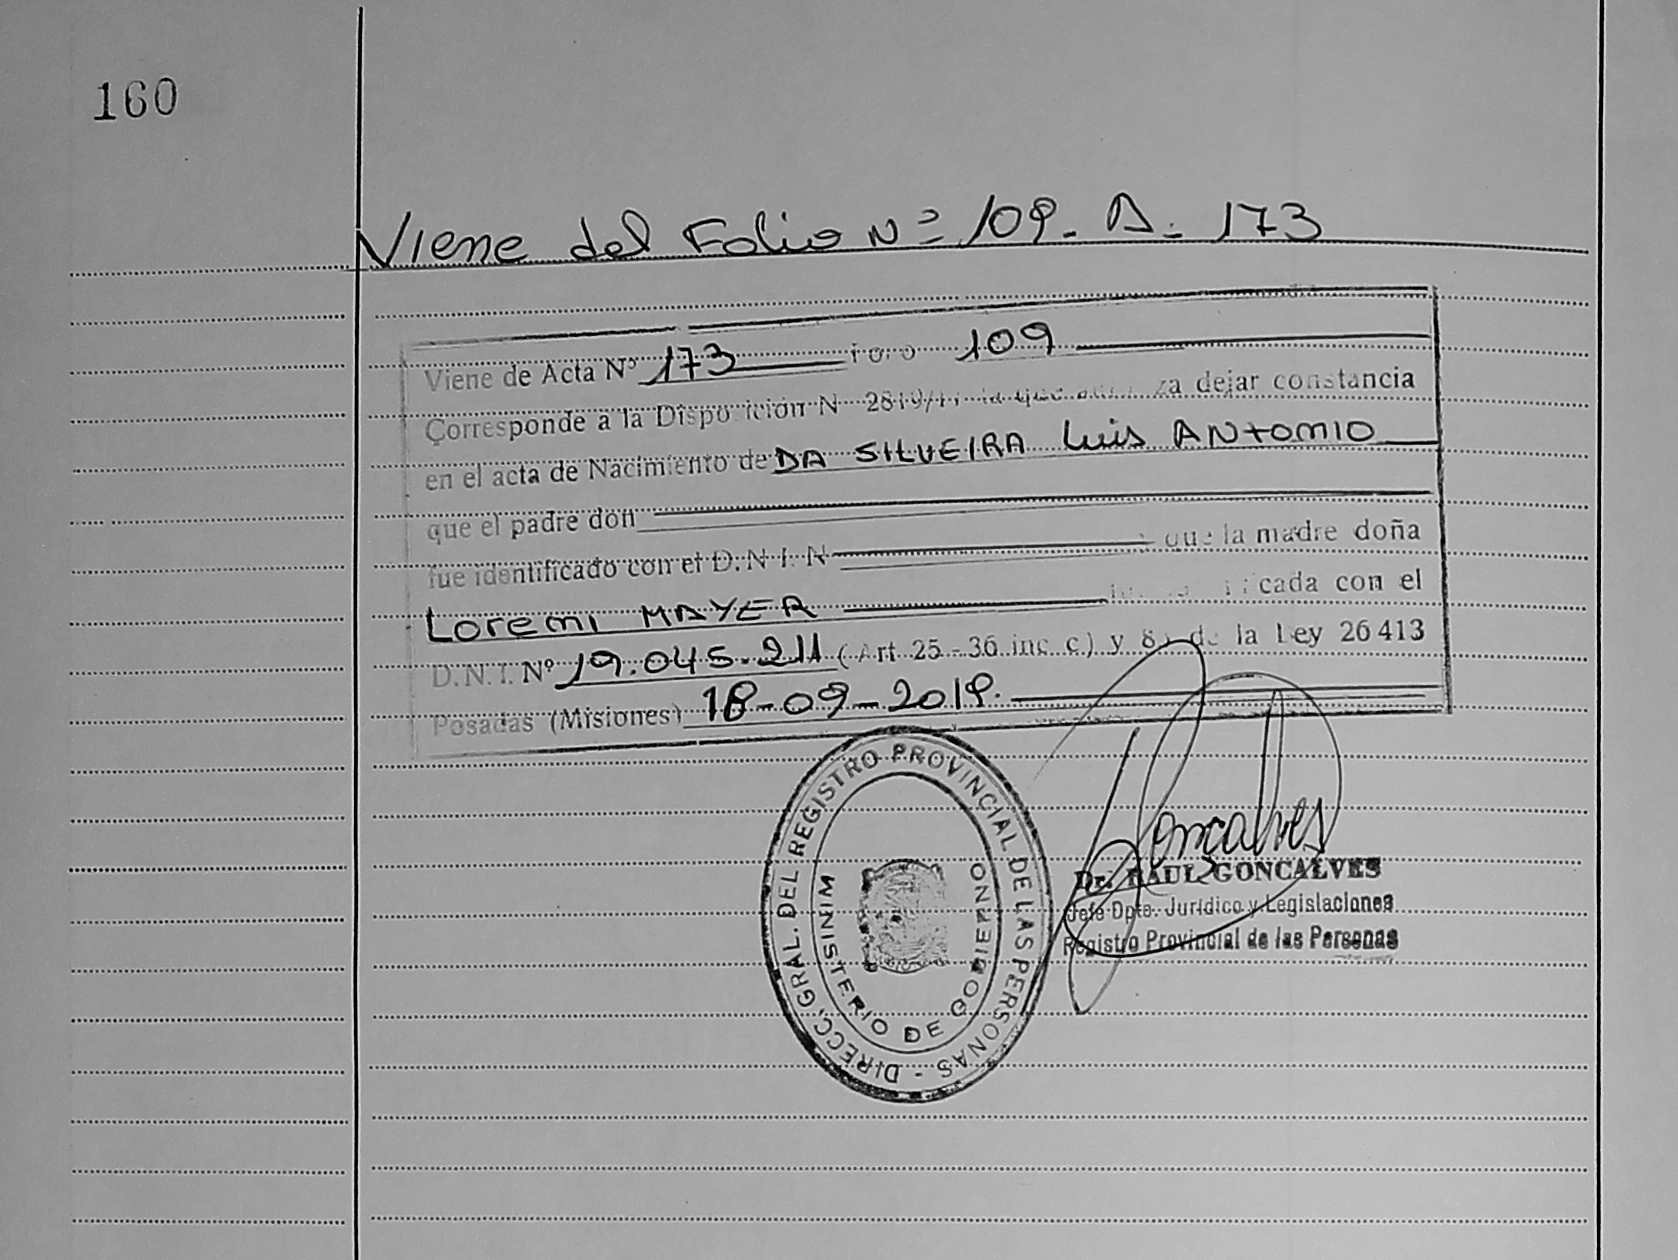 160
Viene del Folio Nº 109- A- 173
Viene de Acta Nº 173 109
Corresponde a la Disposición N 2819/ dejar constancia
en el acta de Nacimiento de DA SILVEIRA Luis ANTONIO
que el padre don
fue identificado con el D.N.I. N que la madre doña
Loreni MAYER cada con el
D.N.I. Nº 19.045.211 (Art 25-36 inc c) y de la Ley 26413
Posadas (Misiones) 18-09-2019.
DIRECC. GRAL. DEL REGISTRO PROVINCIAL DE LAS PERSONAS -
MINISTERIO DE GOBIERNO
Goncalves
Dr. RAUL GONCALVES
Jefe Dpto. Jurídico y Legislaciones
Registro Provincial de las Personas